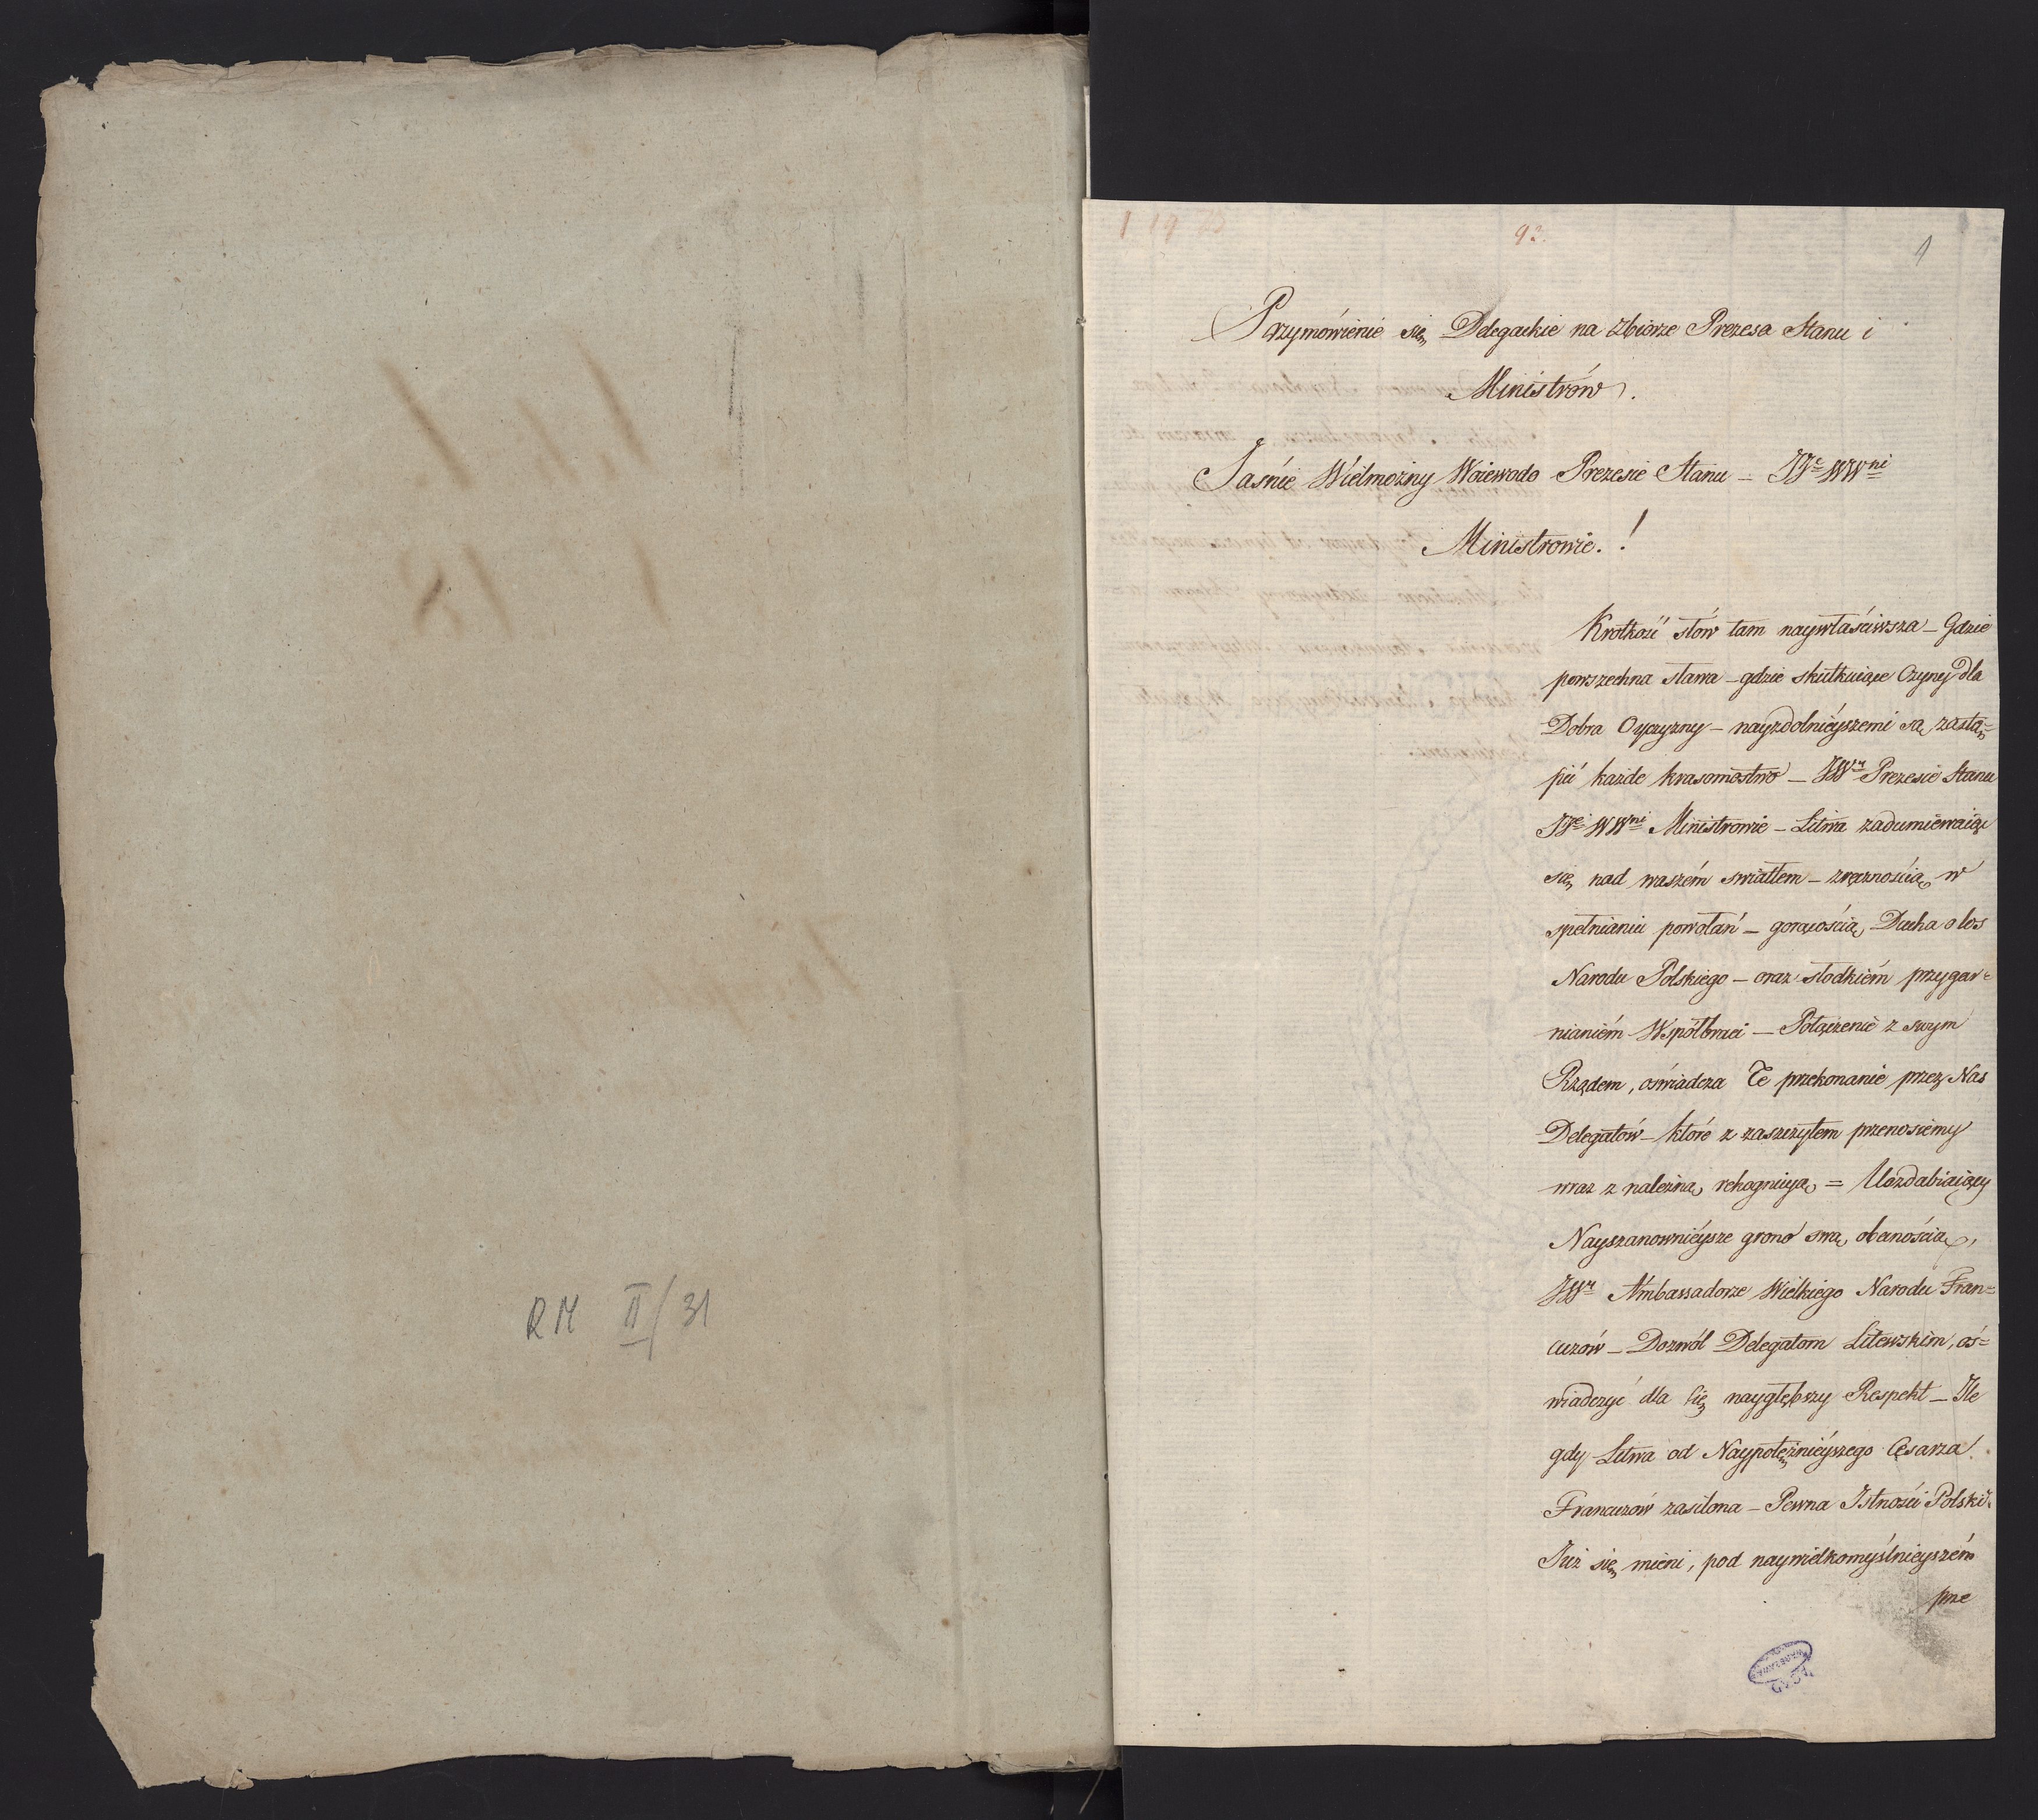 RM II/31
1 19
93.
1
Przymówienie się Delegackie na Zbiorze Prezesa Stanu i
Ministrów.
Jaśnie Wielmożny Woiewodo Prezesie Stanu _ JJe WWni
Ministrowie. !
Krotkość słów tam naywłaściwsza _ Gdzie
powszechna sława _ gdzie skutkuiące Czyny dla
Dobra Oyczyzny _ nayzdolnieyszemi są zastą=
pić każde krasomostwo _ JWny Prezesie Stanu
JJe WWni Ministrowie _ Litwa zadumiewaiąc
się nad waszém swiatłem _ zręcznością w
spełnianiu powołań _ gorącością Ducha o los
Narodu Polskiego _ oraz słodkiém przygar=
nianiém Współbraci _ Połączenie z swym
Rządem, oświadcza Te przekonanie przez Nas
Delegatów _ które z zaszczytem przenosiemy
wraz z należną rekognicyą = Uozdabiaiący
Nayszanownieysze grono swą obecnością,
JWny Ambassadorze Wielkiego Narodu Fran=
cuzów _ Dozwól Delegatom Litewskim, oś=
wiadczyć dla Cię naygłębszy Respekt _ Ile
gdy Litwa od Naypotężnieyszego Cesarza
Francuzów zasilona _ Pewna Istności Polski
Już się mieni, pod naywielkomyślnieyszém
prze
AGAD